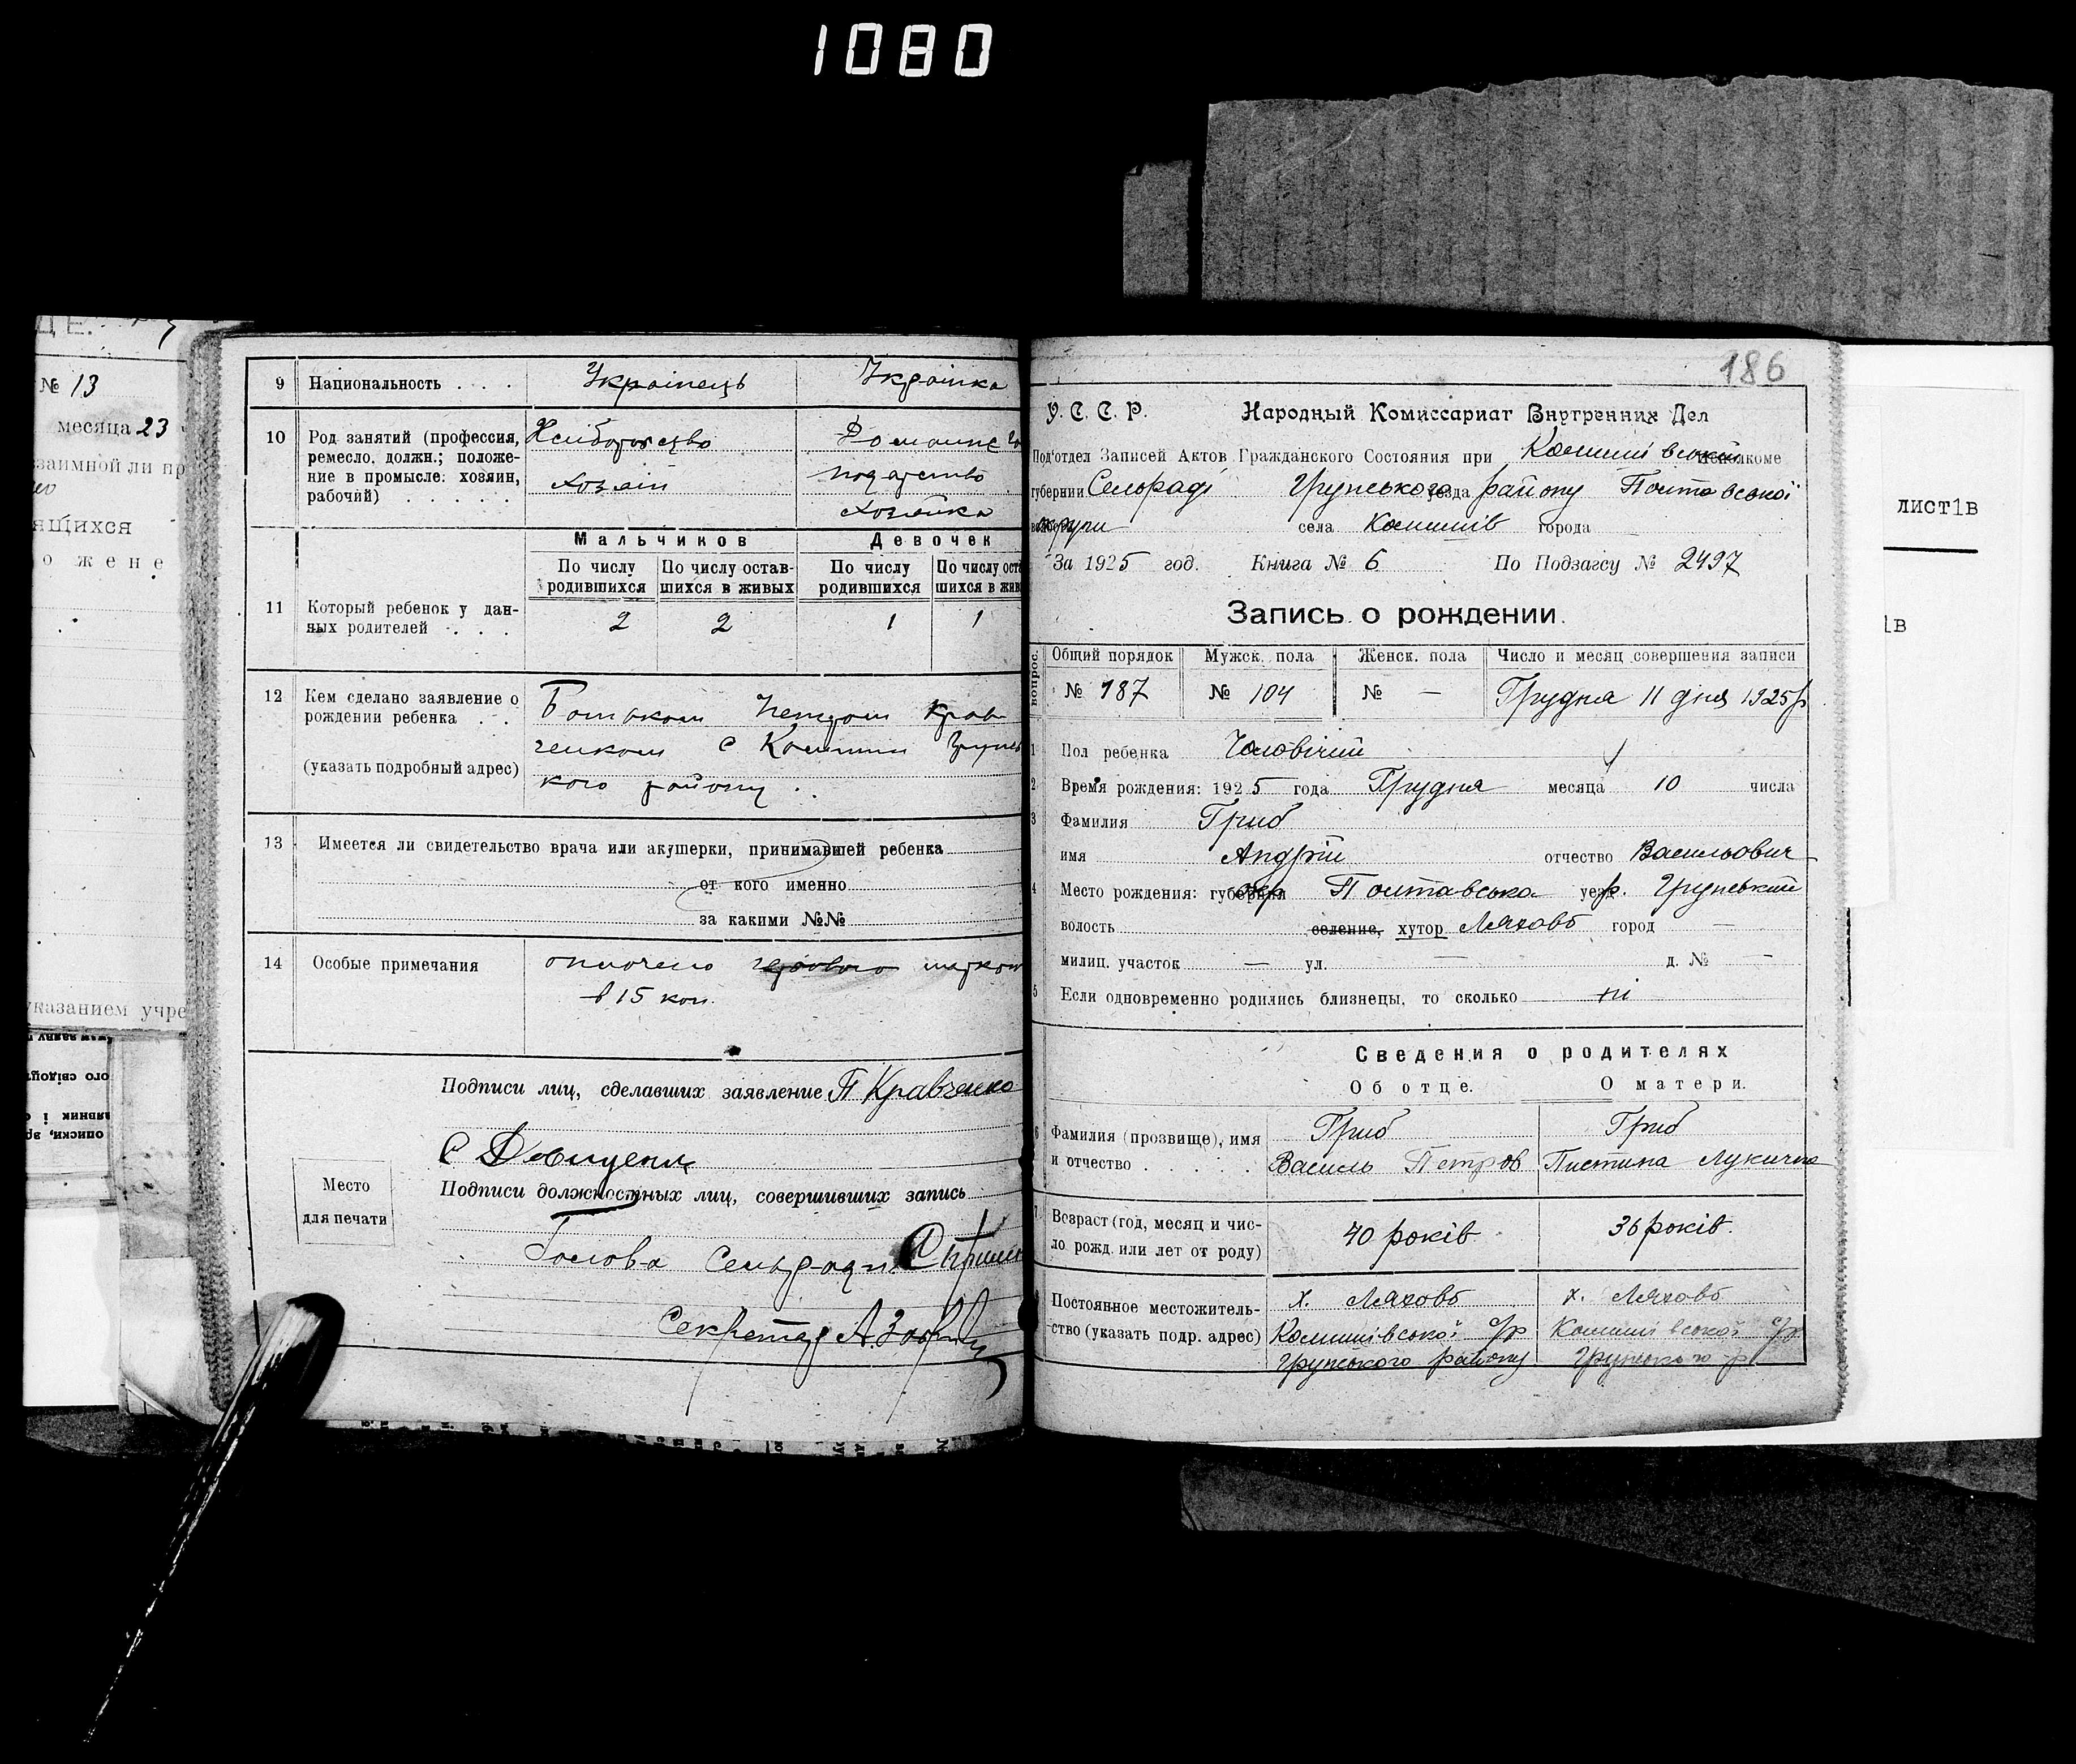 1080
ДЕ.
№ 13
месяца 23
заимной ли пр
ящихся
о жене
указанием учре
9 Национальность . . . Українець Українка
10 Род занятий (профессия, ремесло, должн.; положение в промысле: хозяин, рабочий) . . . . . Хліборобство хозяїн хозяйка
Мальчиков Девочек
По числу родившихся По числу оставшихся в живых По числу родившихся По числу оста шихся в жив
11 Который ребенок у данных родителей . . . 2 2 1 1
12 Кем сделано заявление о рождении ребенка . . Батьком Петром Крав-
ченком с Комиши
(указать подробный адрес) кого району.
13 Имеется ли свидетельство врача или акушерки, принимавшей ребенка
от кого именно
за какими №№
14 Особые примечания оплочено
в 15 коп.
Подписи лиц, сделавших заявление П Кравченко
Место
для печати
Подписи должностных лиц, совершивших запись
Голова Сельради
Секретар А.
186
У. С. С. Р. Народный Комиссариат Внутренних Дел
Под'отдел Записей Актов Гражданского Состояния при Комишівській исполкоме
губернии Сельраді Грунського уезда району Полтавської
округи села Комишів города
За 1925 год. Книга № 6 По Подзагсу № 2497
Запись о рождении.
вопрос. Общий порядок Мужск. пола Женск. пола Число и месяц совершения записи
№ 187 № 104 № — Грудня 11 дня 1925 р
1 Пол ребенка Чоловічий
2 Время рождения: 1925 года Грудня месяца 10 числа
3 Фамилия Гриб
имя Андрій отчество Васильович
4 Место рождения: губерния окр Полтавська уез р. Грунський
волость селение, хутор Ляхов город —
милиц. участок — ул. — д. № —
5 Если одновременно родились близнецы, то сколько ні
Сведения о родителях
Об отце. О матери.
6 Фамилия (прозвище), имя Гриб Гриб
и отчество . . . . . Василь Петров Пистина Лукична
7 Возраст (год, месяц и чис- 40 років 36 років.
ло рожд. или лет от роду)
Постоянное местожитель- х. Ляхов х. Ляхов
ство (указать подр. адрес) Комишівської с/р Комишівської с/р
Грунського району Грунського р
лист1в
1в